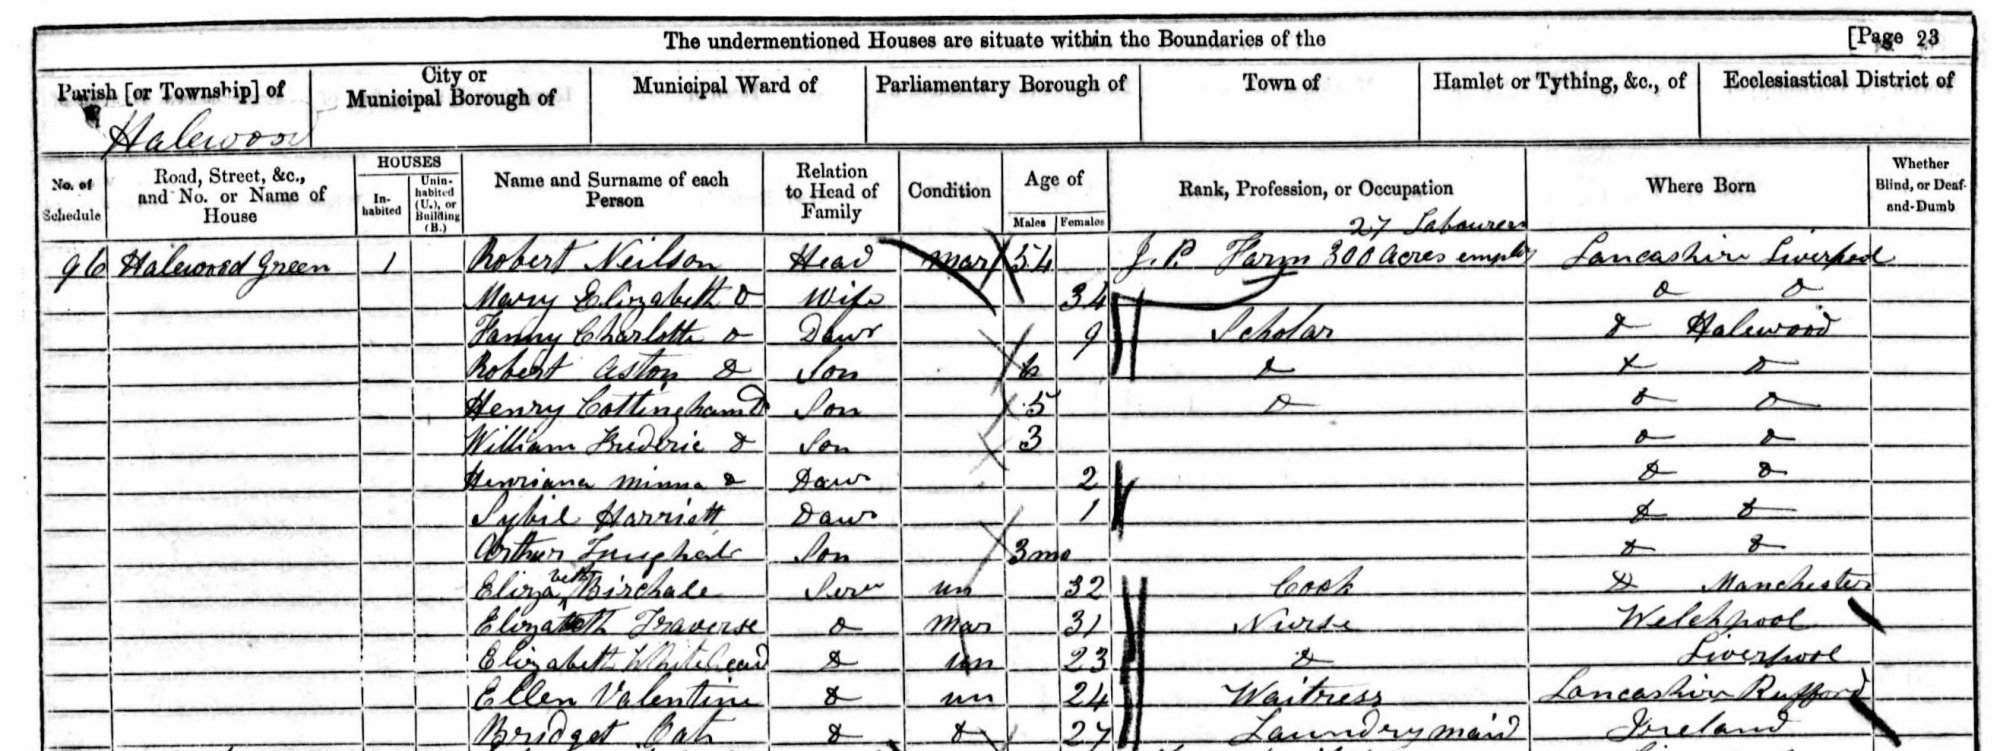 The undermentioned Houses are situate within the Boundaries of the [Page 23
Parish [or Township] of City or Municipal Borough of Municipal Ward of Parliamentary Borough of Town of Hamlet or Tything, &c., of Ecclesiastical District of
Halewood
No. of Schedule Road, Street, &c., and No. or Name of House HOUSES Inhabited Uninhabited (U.), or Building (B.) Name and Surname of each Person Relation to Head of Family Condition Age of Males Females Rank, Profession, or Occupation Where Born Whether Blind, or Deaf-and-Dumb
27 Labourers
96 Halewood Green 1 Robert Neilson Head Mar 54 J.P. Farm 300 acres employ Lancashire Liverpool
Mary Elizabeth Do Wife 34 Do Do
Fanny Charlotte Do Daur 9 Scholar Do Halewood
Robert Aston Do Son 6 Do Do Do
Henry Cottingham Do Son 5 Do Do Do
William Frederic Do Son 3 Do Do
Minna Do Daur 2 Do Do
Sybil Harriett Daur 1 Do Do
Arthur Son 3mo Do Do
Elizabeth Birchale Serv un 32 Cook Do Manchester
Elizabeth Traverse Do Mar 31 Nurse Welchpool
Elizabeth Whitehead Do un 23 Do Liverpool
Ellen Valentine Do un 24 Waitress Lancashire Rufford
Bridget Do Do 27 Laundry maid Ireland